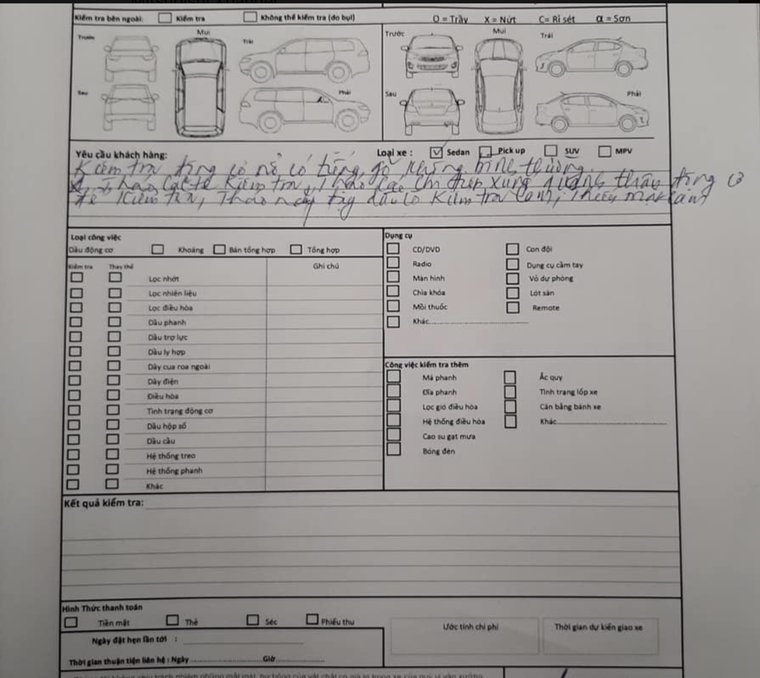 Kiểm tra bên ngoài: Kiểm tra Không thể kiểm tra (do bụi) O = Trầy X = Nứt C= Rỉ sét α = Sơn
Trước Mui Trái Trước Mui Trái
Sau Phải Sau Phải
Yêu cầu khách hàng: Loại xe : Sedan Pick up SUV MPV
Kiểm tra động cơ nổ có tiếng gõ không bình thường.
Kiểm tra, xung quanh thân động cơ
để kiểm tra, Kiểm tra
Loại công việc
Dầu động cơ Khoáng Bán tổng hợp Tổng hợp
Kiểm tra Thay thế Ghi chú
Lọc nhớt
Lọc nhiên liệu
Lọc điều hòa
Dầu phanh
Dầu trợ lực
Dầu ly hợp
Dây cua roa ngoài
Dây điện
Điều hòa
Tình trạng động cơ
Dầu hộp số
Dầu cầu
Hệ thống treo
Hệ thống phanh
Khác
Dụng cụ
CD/DVD Con đội
Radio Dụng cụ cầm tay
Màn hình Vỏ dự phòng
Chìa khóa Lót sàn
Mồi thuốc Remote
Khác
Công việc kiểm tra thêm
Má phanh Ắc quy
Đĩa phanh Tình trạng lốp xe
Lọc gió điều hòa Cân bằng bánh xe
Hệ thống điều hòa Khác
Cao su gạt mưa
Bóng đèn
Kết quả kiểm tra:
Hình Thức thanh toán
Tiền mặt Thẻ Séc Phiếu thu
Ngày đặt hẹn lần tới :
Thời gian thuận tiện liên hệ : Ngày Giờ
Ước tính chi phí Thời gian dự kiến giao xe